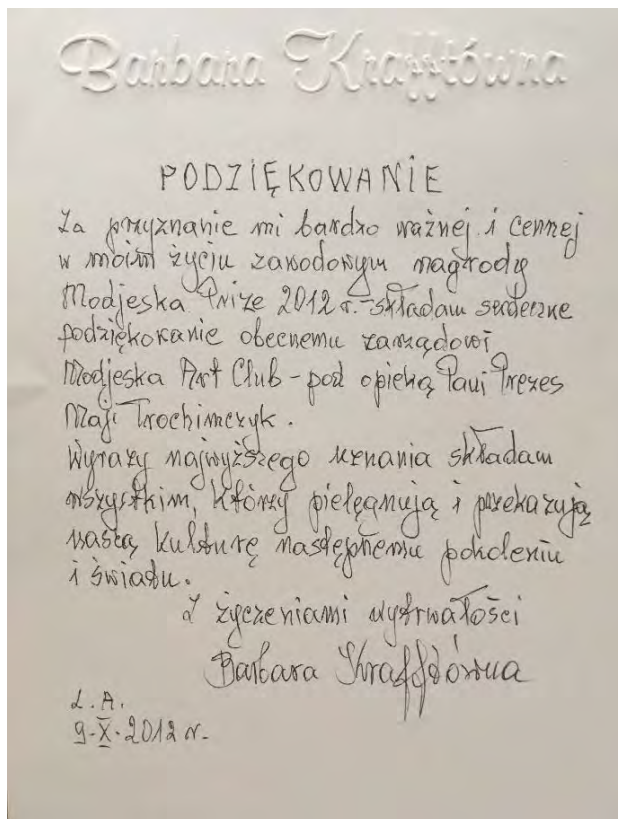 Barbara Krafftówna
PODZIĘKOWANIE
Za przyznanie mi bardzo ważnej i cennej
w moim życiu zawodowym nagrody
Modjeska Prize 2012 r. - składam serdeczne
podziękowanie obecnemu zarządowi
Modjeska Art Club - pod opieką Pani Prezes
Maji Trochimczyk.
Wyrazy najwyższego uznania składam
wszystkim, którzy pielęgnują i przekazują
naszą kulturę następnemu pokoleniu
i światu.
Z życzeniami wytrwałości
Barbara Krafftówna
L.A.
9-X-2012 r.